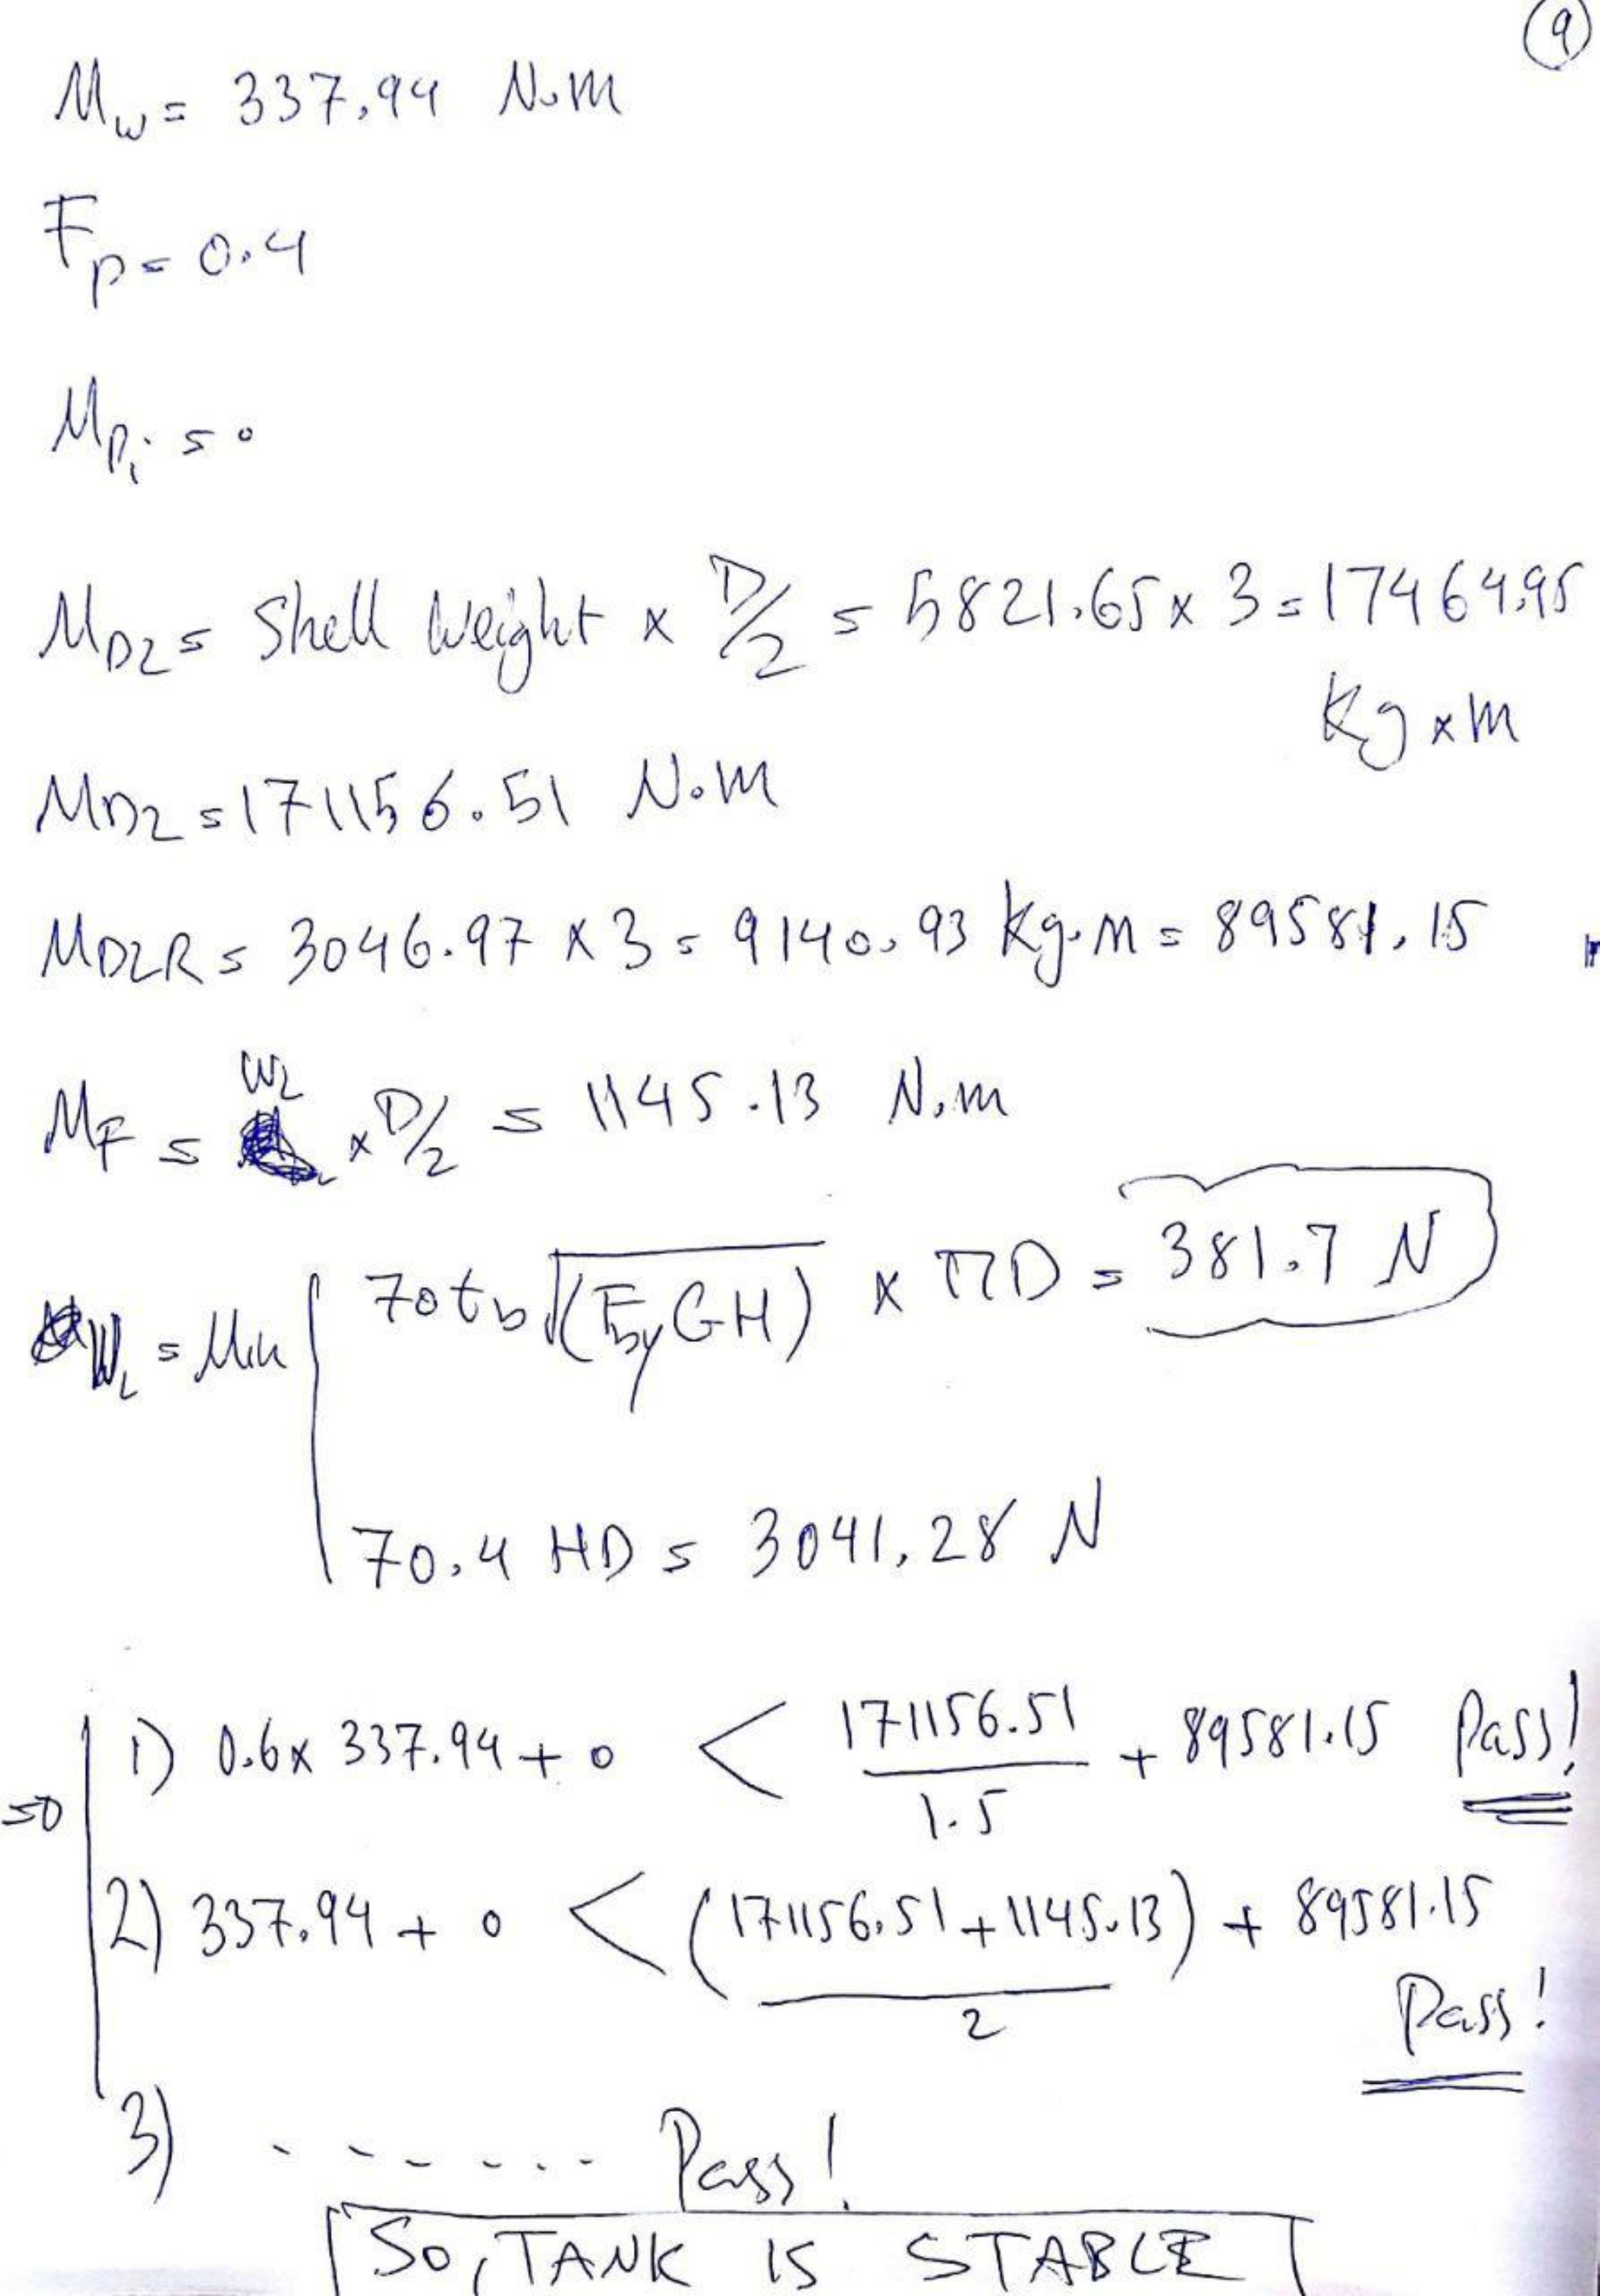 9
Mw = 337.94 N.m
Fp = 0.4
Mpi = 0
MD2 = Shell Weight x D/2 = 5821.65 x 3 = 17464.95
Kg x m
MD2 = 171156.51 N.m
MD2R = 3046.97 x 3 = 9140.93 kg.m = 89581.15
MF = WL x D/2 = 1145.13 N.m
WL = Min 70tb √(Fby GH) x πD = 381.7 N
70.4 HD = 3041.28 N
so 1) 0.6x 337.94 + 0 < 171156.51/1.5 + 89581.15 Pass!
2) 337.94 + 0 < (171156.51 + 1145.13)/2 + 89581.15
Pass!
3) ....... Pass!
So, TANK IS STABLE